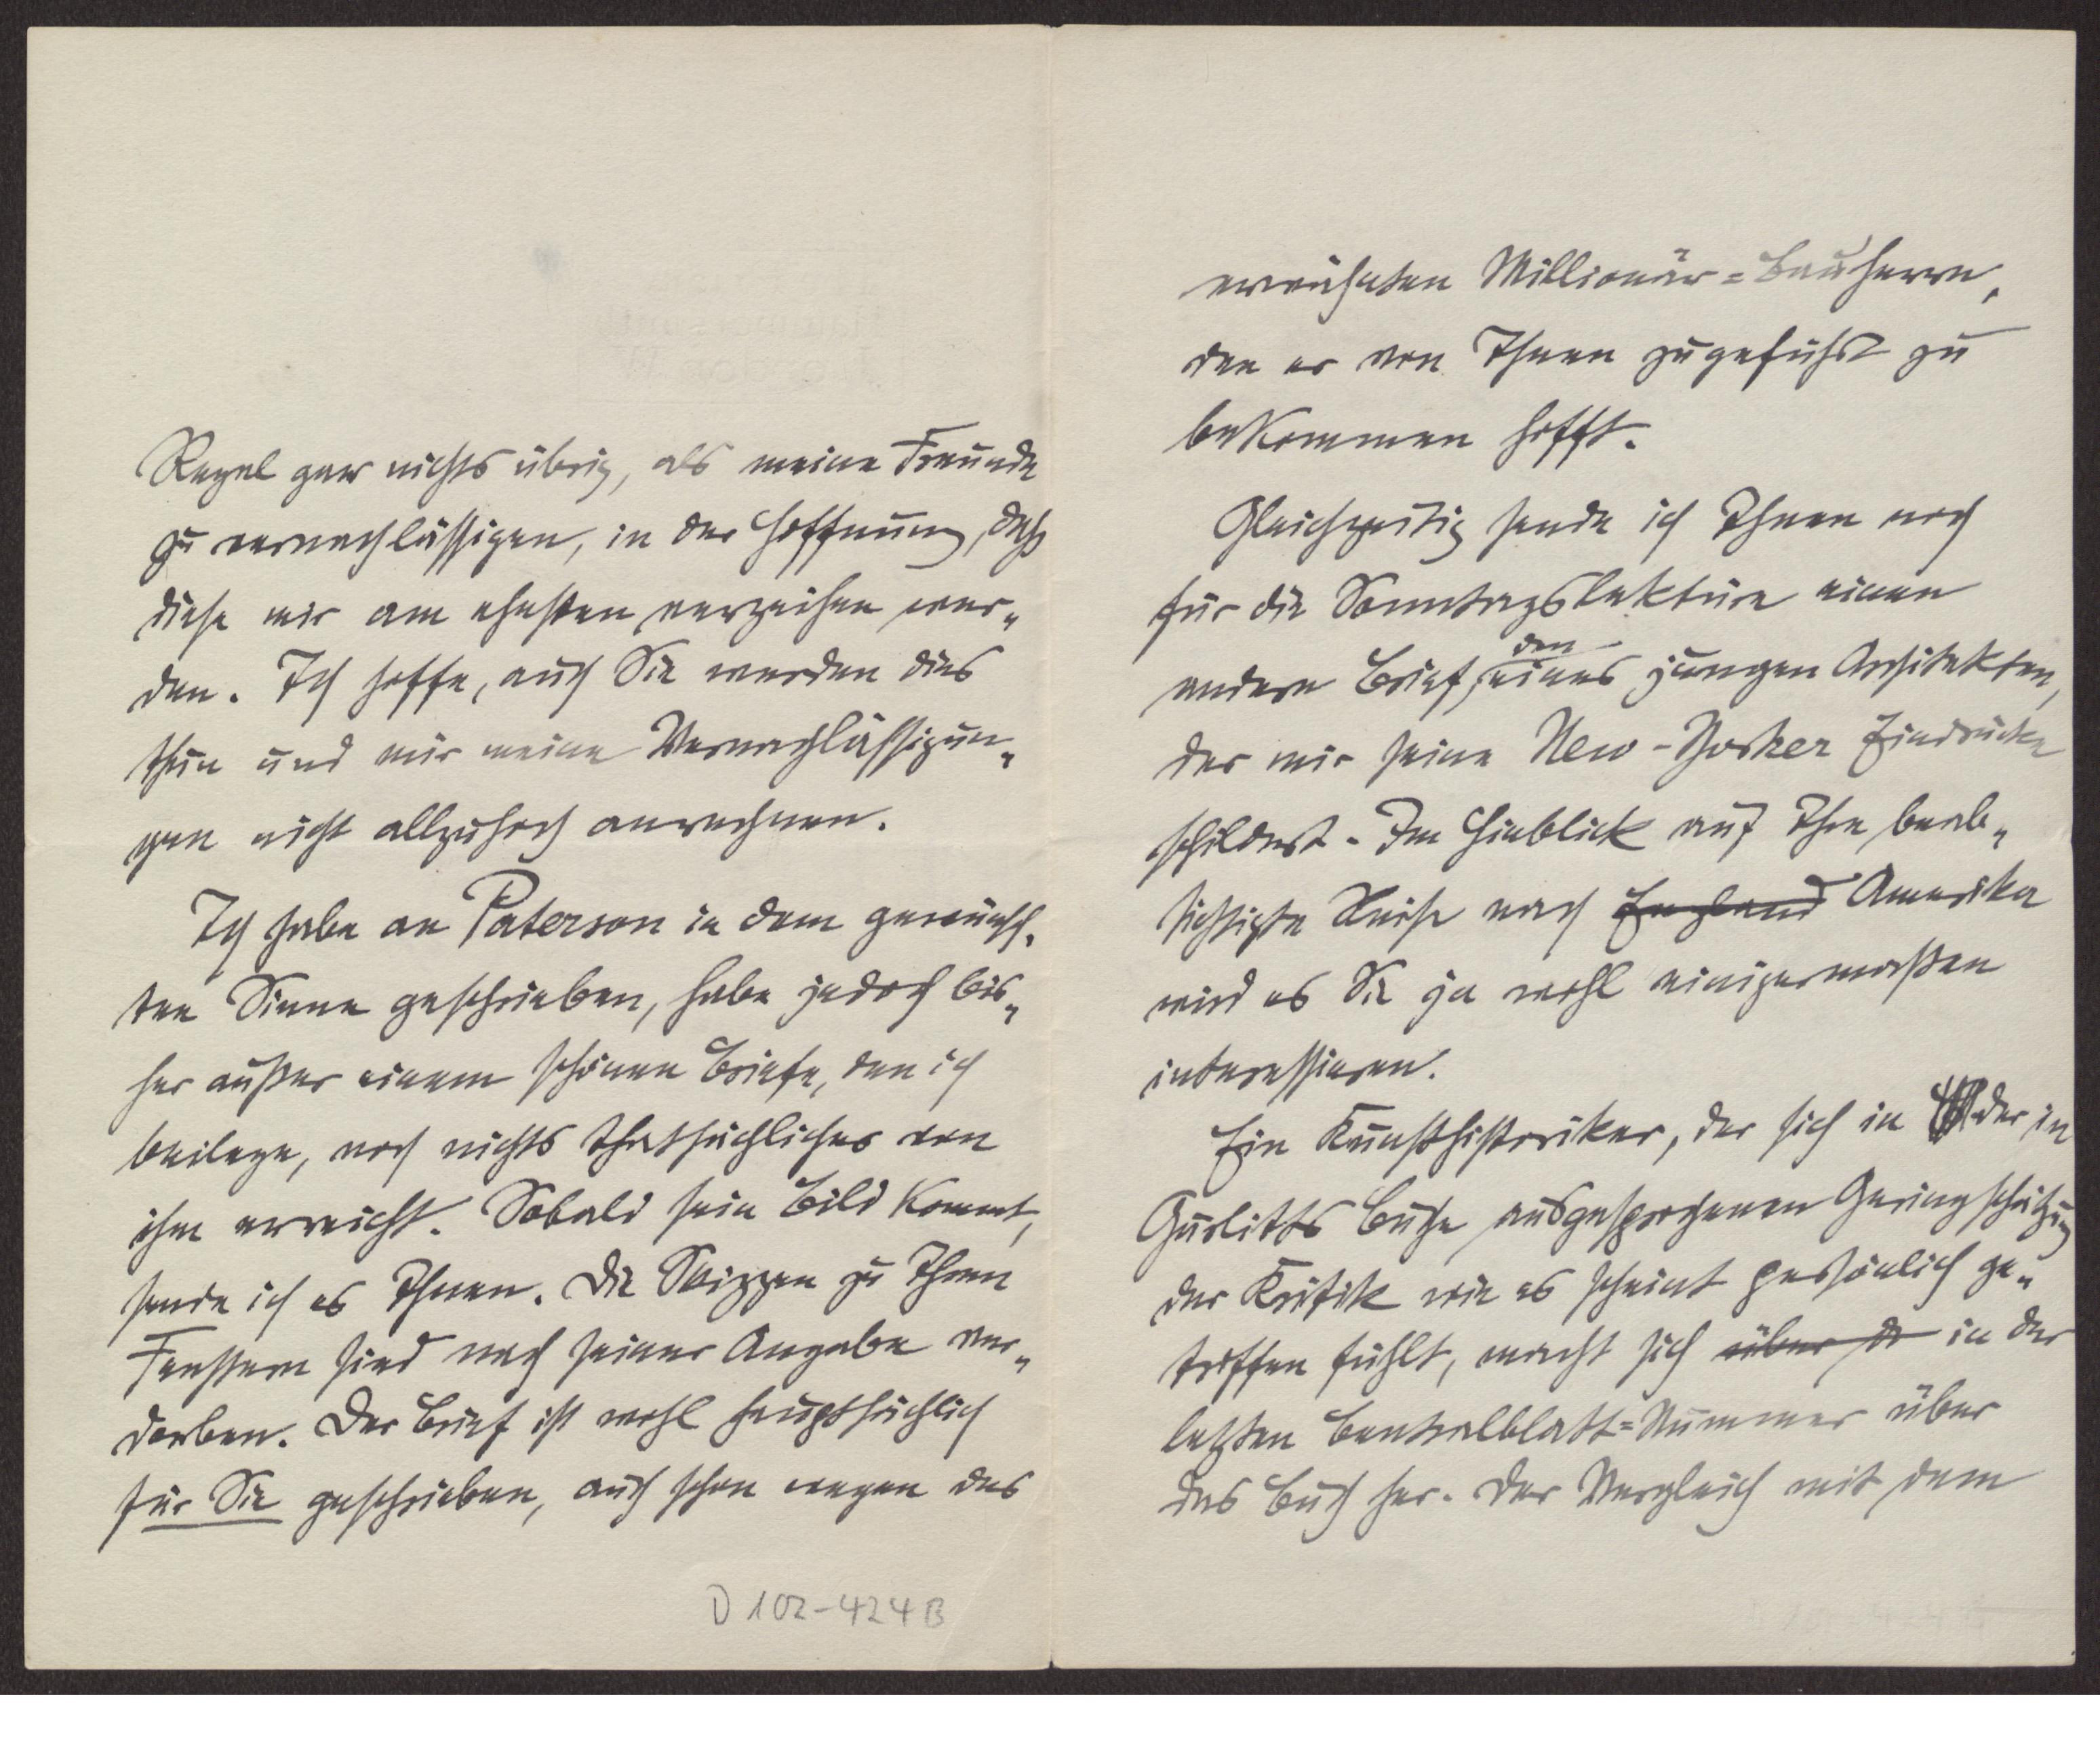 Regel gar nichts übrig, als meine Freunde
zu vernachlässigen, in der Hoffnung, daß
diese mir am ehesten verzeihen wer-
den. Ich hoffe, auch Sie werden dies
thun und mir meine Vernachlässigun-
gen nicht allzuhoch anrechnen.
Ich habe an Paterson in dem gewünsch-
ten Sinne geschrieben, habe jedoch bis-
her außer einem schönen Briefe, den ich
beilege, noch nichts thatsächliches von
ihm erreicht. Sobald sein Bild kommt,
sende ich es Ihnen. Die Skizzen zu Ihren
Fenstern sind nach seiner Angabe ver-
dorben. Der Brief ist wohl hauptsächlich
für Sie geschrieben, auch schon wegen des
D 102-424B
erwähnten Millionär=Bauherrn,
den er von Ihnen zugeführt zu
bekommen hofft.
Gleichzeitig sende ich Ihnen noch
für die Sonntagslektüre einen
andern Brief, den eines jungen Architekten,
der mir seine New-Yorker Eindrücke
schildert. Im Hinblick auf Ihre beab-
sichtigte Reise nach England Amerika
wird es Sie ja wohl einigermaßen
interessieren.
Ein Kunsthistoriker, der sich in der in
Gurlitts Buche ausgesprochenen Geringschätzung
der Kritik wie es scheint persönlich ge-
troffen fühlt, macht sich über in der
letzten Centralblatt=Nummer über
das Buch her. Der Vergleich mit dem